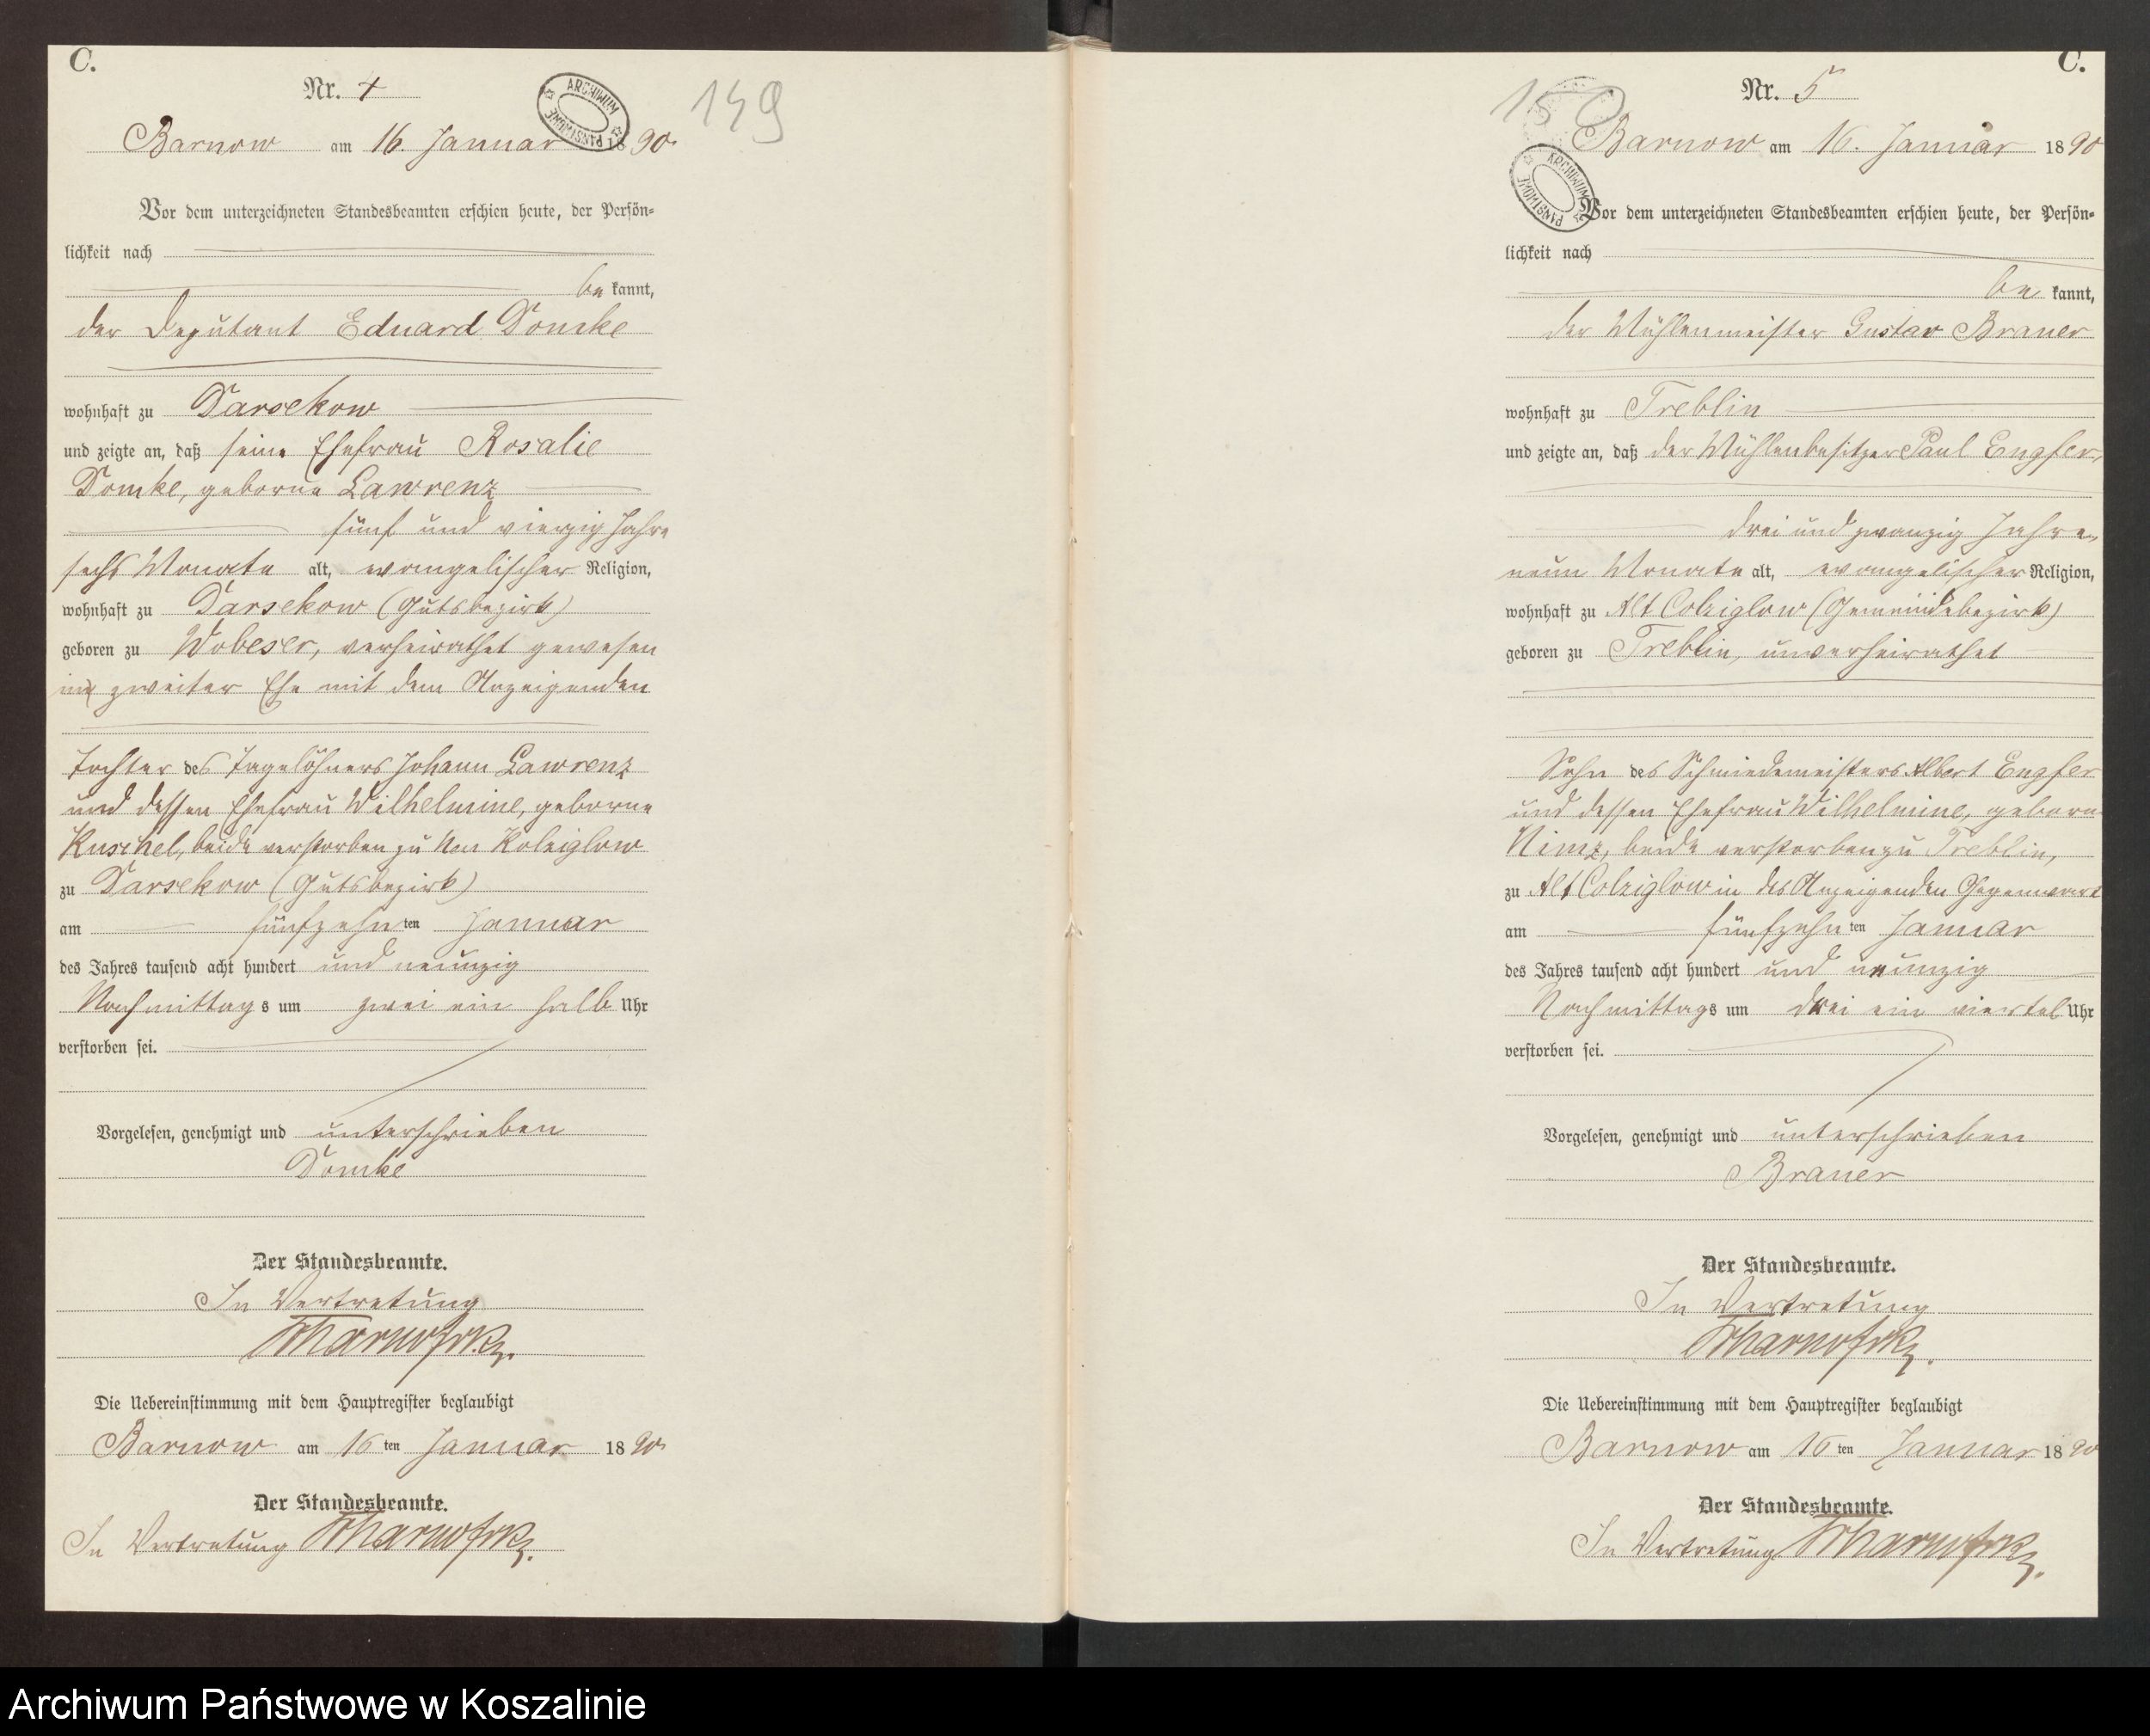 C.
Nr. 4
ARCHIWUM PAŃSTWOWE
149
Barnow am 16. Januar 1890.
Vor dem unterzeichneten Standesbeamten erschien heute, der Persön=
lichkeit nach
be kannt,
der Deputant Eduard Domke
wohnhaft zu Darsekow
und zeigte an, daß seine Ehefrau Rosalie
Domke, geborne Lawrenz
fünf und vierzig Jahre
sechs Monate alt, evangelischer Religion,
wohnhaft zu Darsekow (Gutsbezirk)
geboren zu Wobeser, verheirathet gewesen
in zweiter Ehe mit dem Anzeigenden
Tochter des Tagelöhners Johann Lawrenz
und dessen Ehefrau Wilhelmine, geborne
Kuschel, beide verstorben zu Neu Kolziglow
zu Darsekow (Gutsbezirk)
am fünfzehn ten Januar
des Jahres tausend acht hundert und neunzig
Nachmittag s um zwei ein halb Uhr
verstorben sei.
Vorgelesen, genehmigt und unterschrieben
Domke
Der Standesbeamte.
In Vertretung
Die Uebereinstimmung mit dem Hauptregister beglaubigt
Barnow am 16 ten Januar 1890.
Der Standesbeamte.
In Vertretung
C.
Nr. 5
150
ARCHIWUM PAŃSTWOWE
Barnow am 16. Januar 1890
Vor dem unterzeichneten Standesbeamten erschien heute, der Persön=
lichkeit nach
be kannt,
der Mühlenmeister Gustav Brauer
wohnhaft zu Treblin
und zeigte an, daß der Mühlenbesitzer Paul Engfer,
drei und zwanzig Jahre
neun Monate alt, evangelischer Religion,
wohnhaft zu Alt Colziglow (Gemeindebezirk)
geboren zu Treblin, unverheirathet
Sohn des Schmiedemeisters Albert Engfer
und dessen Ehefrau Wilhelmine, geborne
Nimz, beide verstorben zu Treblin,
zu Alt Colziglow in des Anzeigenden Gegenwart
am fünfzehn ten Januar
des Jahres tausend acht hundert und neunzig
Nachmittag s um drei ein viertel Uhr
verstorben sei.
Vorgelesen, genehmigt und unterschrieben
Brauer
Der Standesbeamte.
In Vertretung
Die Uebereinstimmung mit dem Hauptregister beglaubigt
Barnow am 16 ten Januar 1890
Der Standesbeamte.
In Vertretung
Archiwum Państwowe w Koszalinie